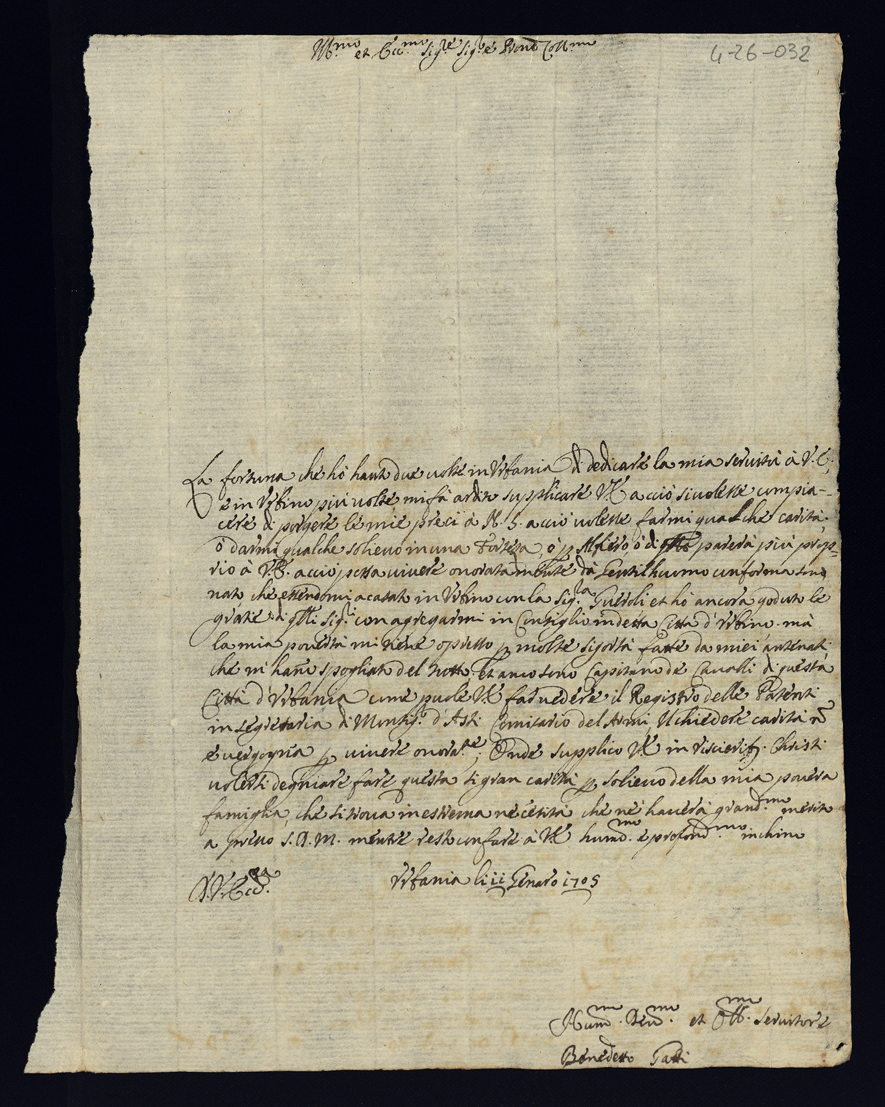 Ill.mo et Ecc.mo Sig.re Sig.re Pron Coll.mo
4-26-032
La fortuna che hò hauta due uolte in Vrbania di dedicare la mia seruitù à V. E.,
e in Vrbino piu uolte mi fà ardito supplicare VE acciò si uolesse compia-
cere di porgere le mie preci à N. S. acciò uolesse farmi qualche carità,
ò darmi qualche solieuo in una Forteza, ò p Alfiero, ò di parerà più prop-
rio à V.E. acciò possa uiuere onoratamente da Gentilhuomo conforma sono
nato che essendomi acasato in Vrbino con la Sig.ra Gueroli et hò ancora goduto le
gratie di q.lli Sig.ri con agregarmi in Consiglio in detta Citta d'Vrbino. mà
la mia pouertà mi tiene opresso p molte sigortà fatte da miei antenati
che mi hano spogliato del tutto. et anco sono Capitano de Caualli di questa
Città d'Vrbania come puole VE far uedere il Registro delle Patenti
in Segretaria di Monsig.r d'Asti Comisario del Armi Il chiedere carità nõ
è uergogna p uiuere onorat.te; Onde supplico VE in uisceribg. Christi
uolersi degniare fare questa si gran carità p solieuo della mia pouera
famiglia, che si troua in estrema necesità che ne hauerà grand.mo merito
a presso S. D. M. mentre resto con fare à VE hum.mo e profond.mo inchino
D. V. Ecc.za
Vrbania li 11 Genaro 1705
Hum.mo Deu.mo et Obl.mo Seruitore
Benedetto Gatti